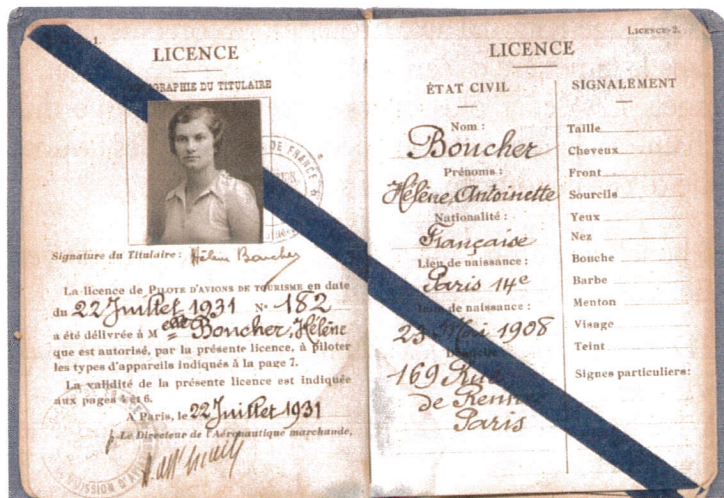 LICENCE
PHOTOGRAPHIE DU TITULAIRE
DE FRANCE
Signature du Titulaire : Hélène Boucher
La licence de PILOTE D'AVIONS DE TOURISME en date
du 22 Juillet 1931 N° 182
a été délivrée à Melle Boucher, Hélène
que est autorisé, par la présente licence, à piloter
les types d'appareils indiqués à la page 7.
La validité de la présente licence est indiquée
aux pages 4 et 6.
A Paris, le 22 Juillet 1931
Le Directeur de l'Aéronautique marchande,
LICENCE-2.
LICENCE
ÉTAT CIVIL
Nom :
Boucher
Prénoms :
Hélène, Antoinette
Nationalité :
Française
Lieu de naissance :
Paris 14e
de naissance :
23 Mai 1908
169 Rue
de Rennes
Paris
SIGNALEMENT
Taille
Cheveux
Front
Sourcils
Yeux
Nez
Bouche
Barbe
Menton
Visage
Teint
Signes particuliers: